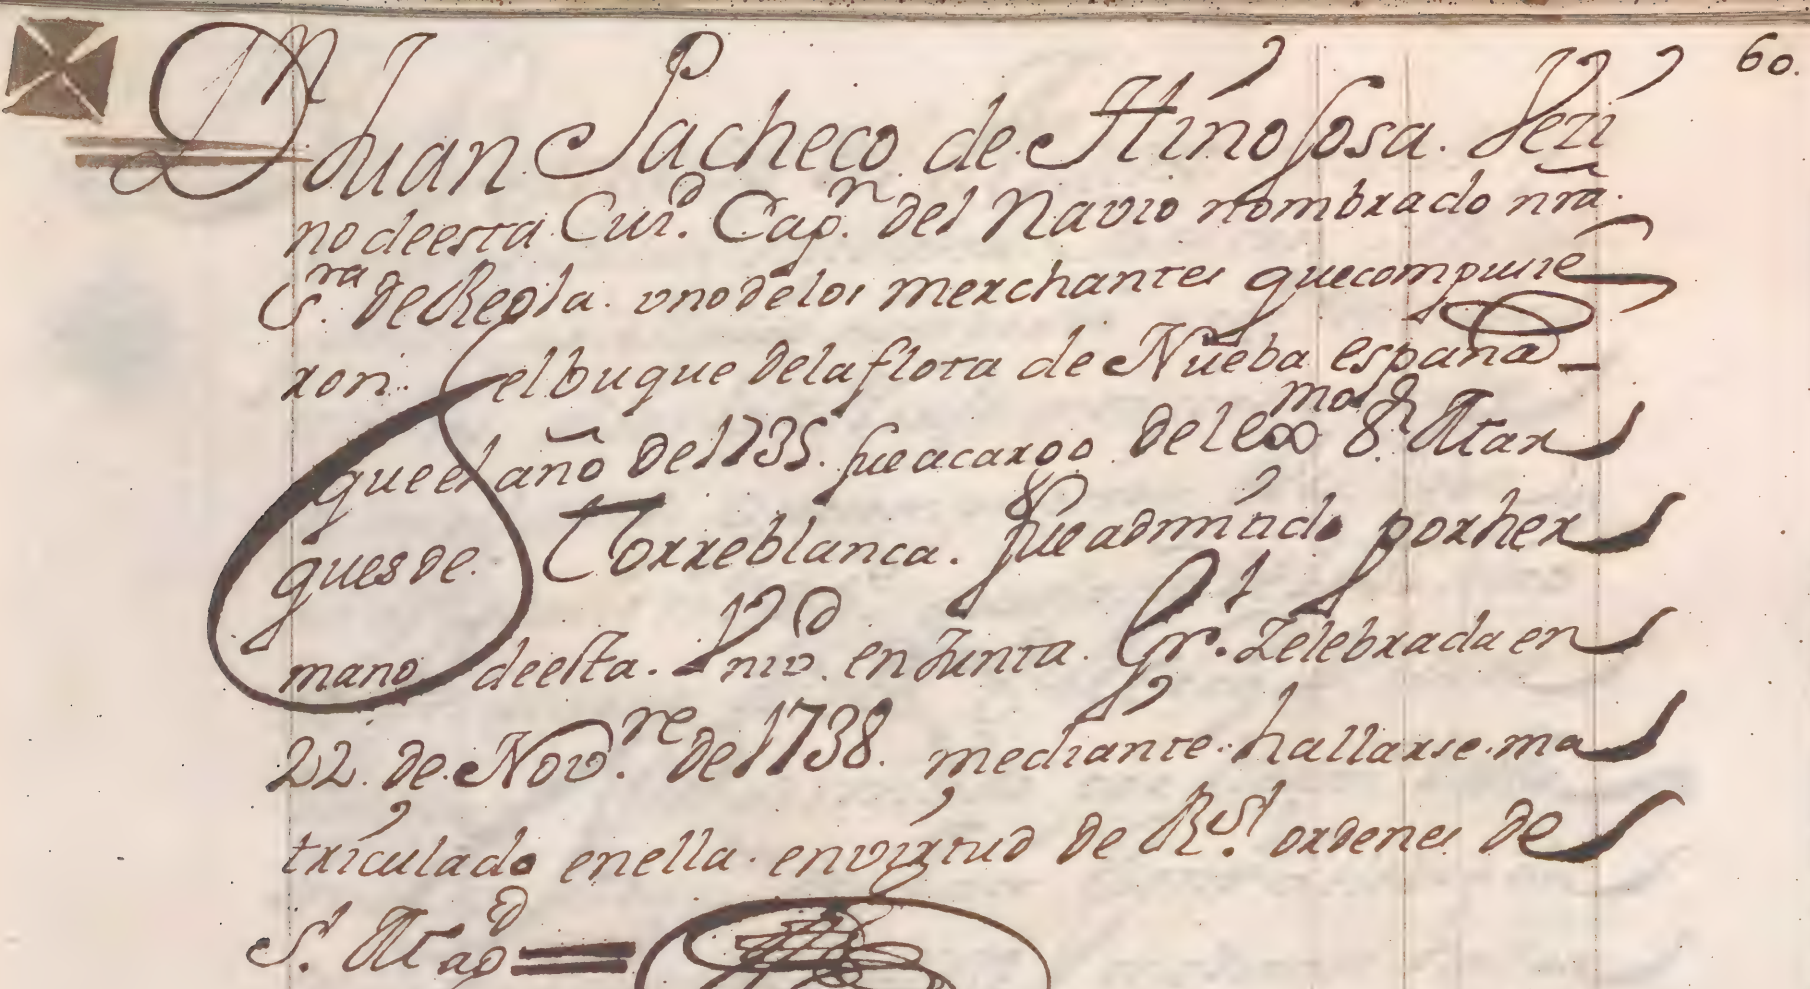 60.
Dn Juan Pacheco de Hinososa. Vezi
no de esta Ciud. Capn. del Navio nombrado nra.
Sra. de Regla. uno de los merchantes que compusie
ron. el buque de la flota de Nueba españa
que el año de 1735. fue a cargo del exmo Sr. Mar
ques de. Torreblanca. fue admitido por her
mano de esta. Univd. en Junta. Grl. Zelebrada en
22. de Novre. de 1738. mediante. hallarse. ma
triculado en ella. en virtud de Rsl. ordenes de
S. Magd =